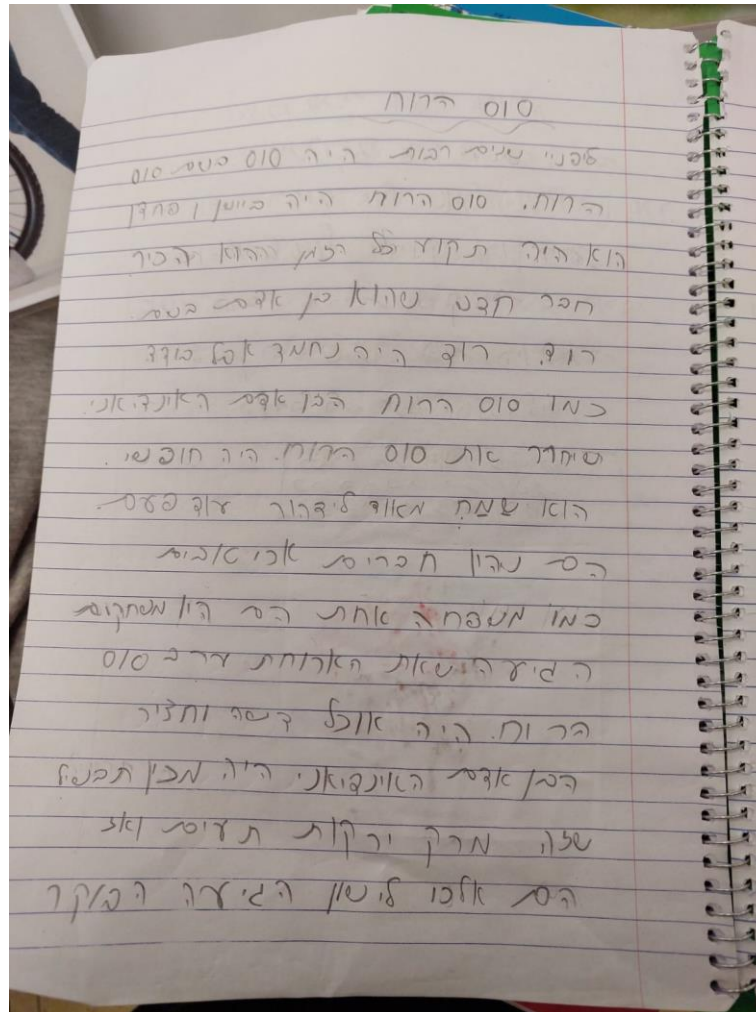 סוס הרוח
לפני שנים רבות היה סוס בשם סוס
הרוח. סוס הרוח היה ביישן ו פחדן
הוא היה תקוע כל הזמן ההוא הכיר
חבר חדש שהוא בן אדם בשם
רוד. רוד היה נחמד אבל בודד
כמו סוס הרוח הבן אדם האינדיאני
שיחרר את סוס הרוח. היה חופשי.
הוא שמח מאוד לידהור עוד פעם
הם נהיו חברים אכי טובים
כמו משפחה אחת הם היו משחקים
ה גיעה שאת הארוחת ערב סוס
הרוח. היה אוכל דשה וחציר
הבן אדם האינדיאני היה מכין תבשיל
שזה מרק ירקות תעים ואז
הם אלכו לישון הגיעה הבוקר